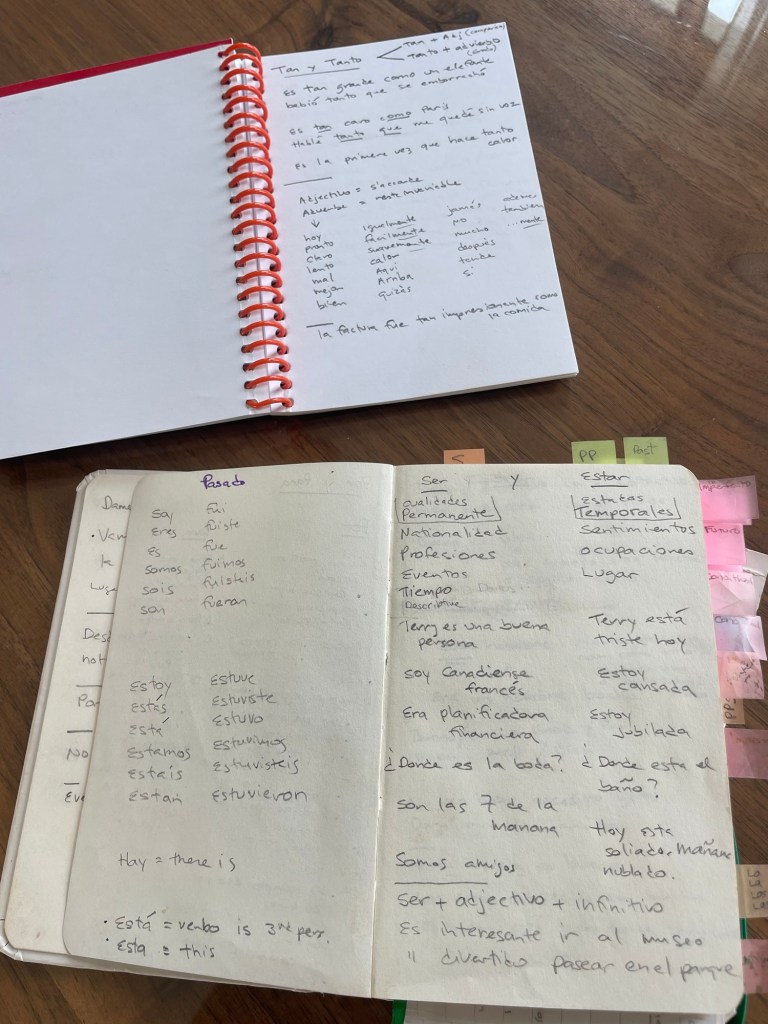 Tan y Tanto
Tan + Adj (comparate)
Tanto + adviergo
Es tan grande como un elefante
babió tanto que se emborrachó
Es tan caro como Paris
Hablé tanto que me quedé sin voz
Es la primera vez que hace tanto
calor
Adjectivo = s'accorde
Adverbe = reste invariable
hoy igualmente jamás
pronto fácilmente NO también
claro suavemente mucho ...mente
lento calor después
mal Aqui tarde
mejor Arriba si
bien quizás
la factura fue tan impresionante como
la comida
S
PP
Past
Imperfecto
Futuro
La
La
Los
Las
Dame
Ven
la
Luga
Desc
not
Pa
No
Eve
Pasado
Soy fui
Eres fuiste
Es fue
Somos fuimos
sois fuisteis
son fueron
Estoy Estuve
Estás Estuviste
Está Estuvo
Estamos Estuvimos
Estaís Estuvisteis
Están Estuvieron
Hay = there is
• Está = verbo is 3rd pers.
• Esta = this
Ser y Estar
Qualidades Estados
Permanente Temporales
Nationalidad Sentimientos
Profesiones Ocupaciones
Eventos Lugar
Tiempo
Descriptive
Terry es una buena Terry está
persona triste hoy
Soy Canadiense Estoy
francés cansada
Era planificadora Estoy
financiera Jubilada
¿Donde es la boda? ¿Donde esta el
baño?
Son las 7 de la
manana Hoy esta
soliador Mañana
Somos amigos nublado.
Ser + adjectivo + infinitivo
Es interesante ir al museo
" divertido pasear en el parque